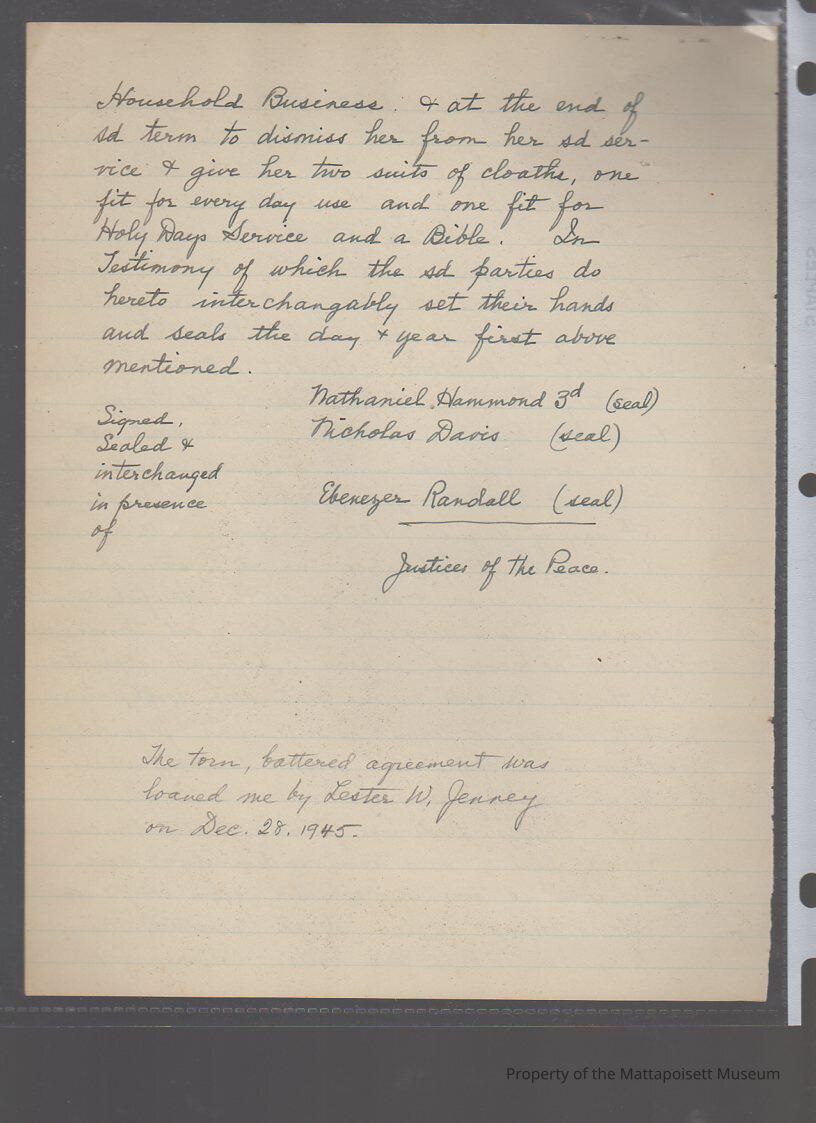 Household Business. & at the end of
sd term to dismiss her from her sd ser-
vice & give her two suits of cloaths, one
fit for every day use and one fit for
Holy Days Service and a Bible. In
Testimony of which the sd parties do
hereto interchangably set their hands
and seals the day & year first above
mentioned.
Nathaniel Hammond 3d (seal)
Nicholas Davis (seal)
Signed,
Sealed &
interchanged
in presence
of
Ebenezer Randall (seal)
Justices of the Peace.
The torn, battered agreement was
loaned me by Lester W. Jenney
on Dec. 28. 1945.
STAPLES
Property of the Mattapoisett Museum